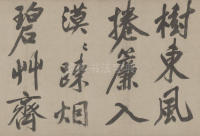 樹東風
捲簾入
漠〻疎烟
碧艸齊